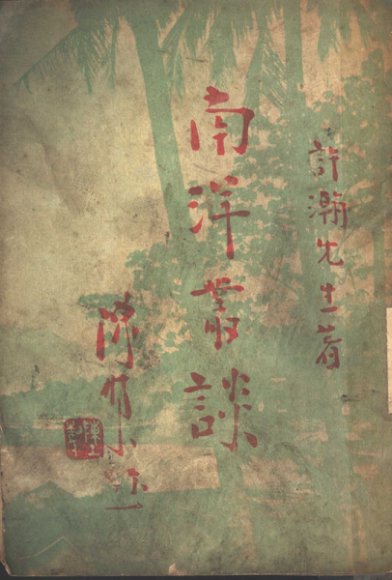 許瀚先生著
南洋叢談
陳